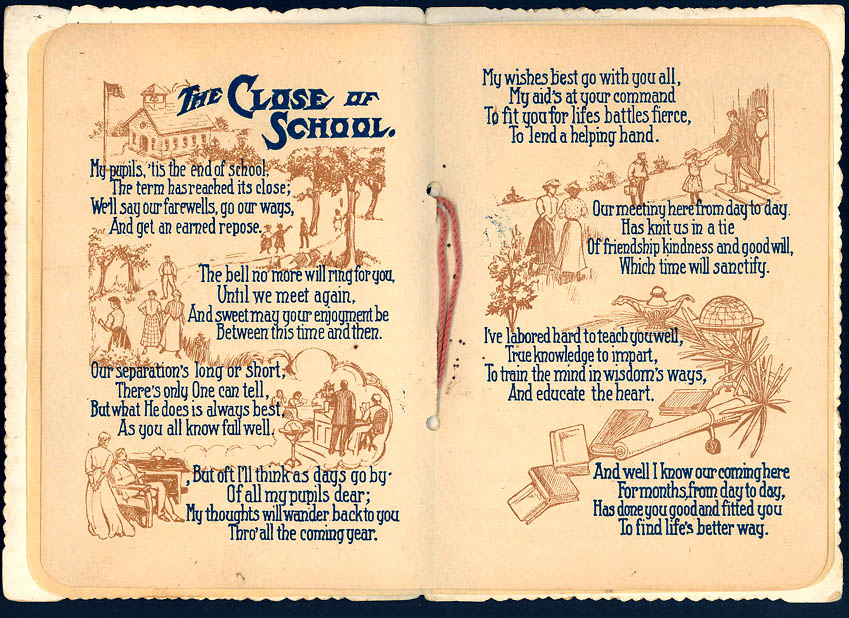 The Close of
School.
My pupils, 'tis the end of school;
The term has reached its close;
We'll say our farewells, go our ways,
And get an earned repose.
The bell no more will ring for you,
Until we meet again,
And sweet may your enjoyment be
Between this time and then.
Our separation's long or short,
There's only One can tell,
But what He does is always best,
As you all know full well.
But oft I'll think as days go by-
Of all my pupils dear;
My thoughts will wander back to you
Thro' all the coming year.
My wishes best go with you all,
My aid's at your command
To fit you for lifes battles fierce,
To lend a helping hand.
Our meeting here from day to day.
Has knit us in a tie
Of friendship kindness and good will,
Which time will sanctify.
I've labored hard to teach you well,
True knowledge to impart,
To train the mind in wisdom's ways,
And educate the heart.
And well I know our coming here
For months, from day to day,
Has done you good and fitted you
To find life's better way.